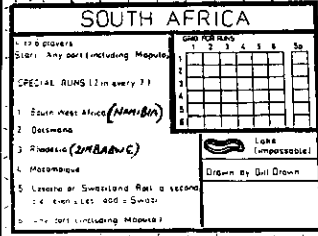 SOUTH AFRICA
1 to 6 players
Start Any port (including Maputo)
SPECIAL RUNS (2 in every 7)
1 South West Africa (NAMIBIA)
2 Botswana
3 Rhodesia (ZIMBABWE)
4 Mozambique
5 Lesotho or Swaziland Roll a second
i.e. even = Les. odd = Swazi
6 Any port (including Maputo)
GRID FOR RUNS
1 2 3 4 5 6 Sp
1
2
3
4
5
6
Lake
(impassable)
Drawn by Bill Brown